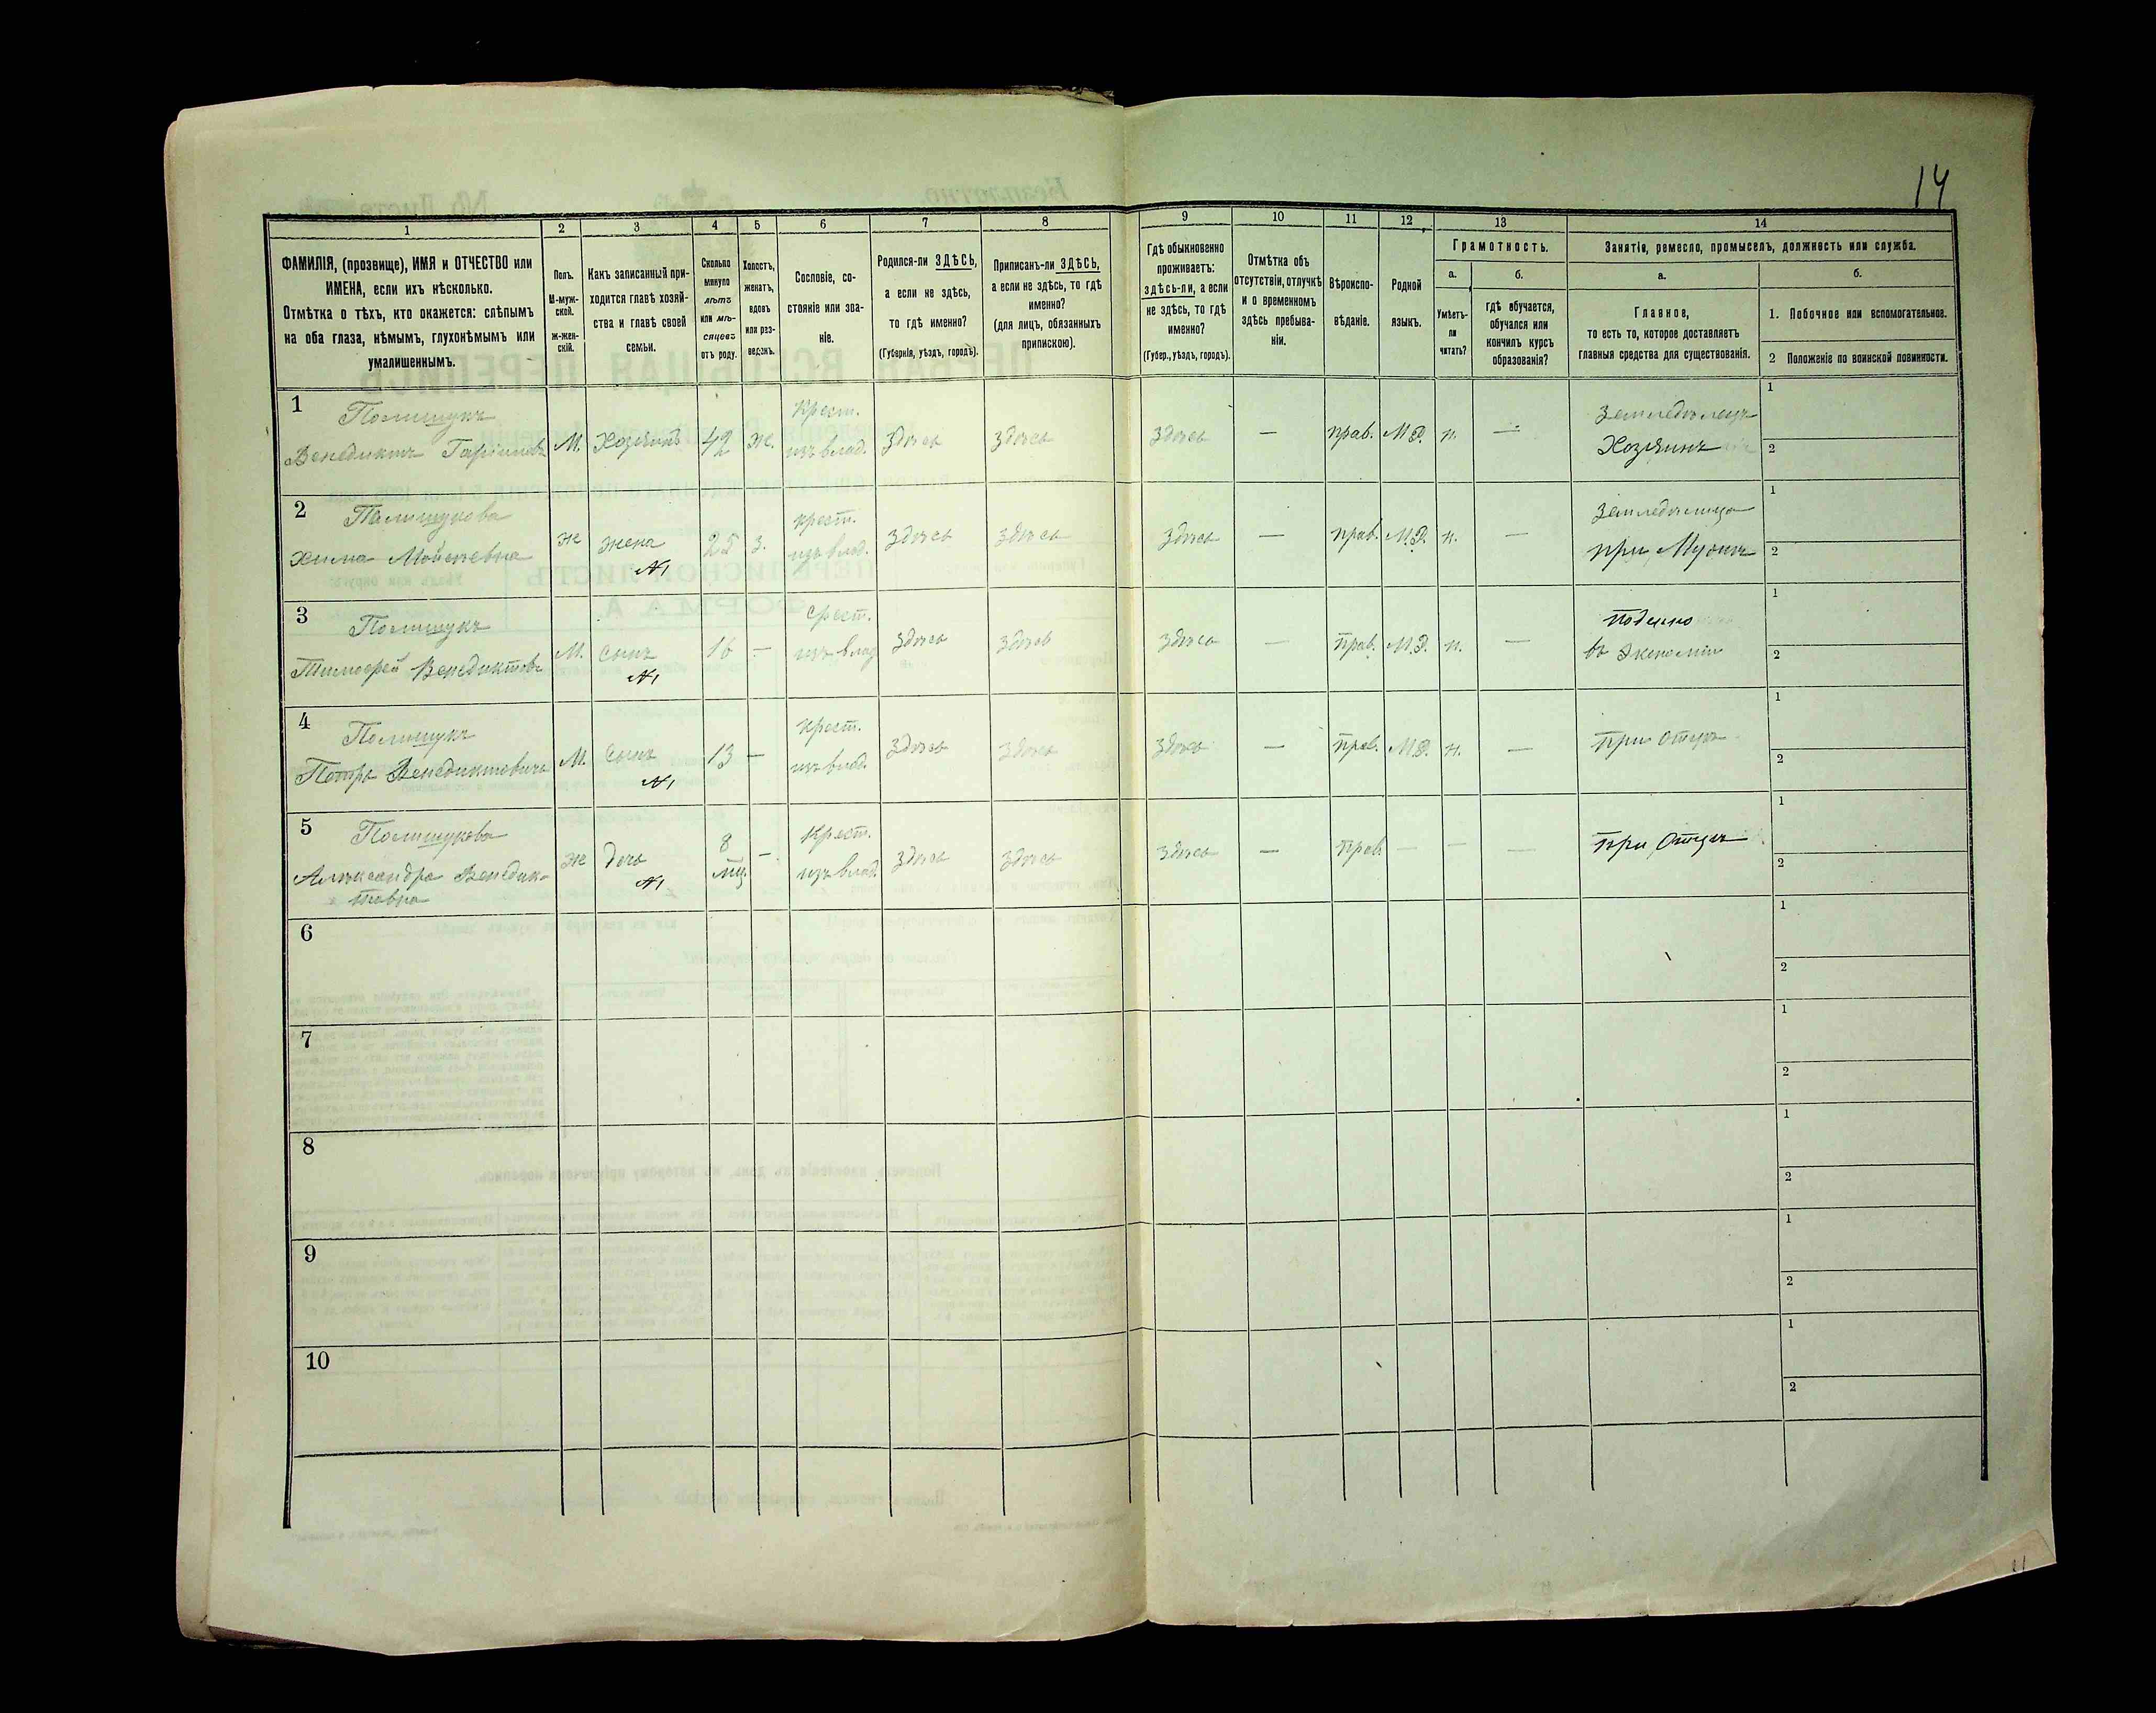 14
1
2
3
4
5
6
7
8
9
10
11
12
13
14
ФАМИЛІЯ, (прозвище), ИМЯ и ОТЧЕСТВО или
ИМЕНА, если ихъ нѣсколько.
Отмѣтка о тѣхъ, кто окажется: слѣпымъ
на оба глаза, нѣмымъ, глухонѣмымъ или
умалишеннымъ.
Полъ.
М-муж-
ской.
ж-жен-
скій.
Какъ записанный при-
ходится главѣ хозяй-
ства и главѣ своей
семьи.
Сколько
минуло
лѣтъ
или мѣ-
сяцевъ
отъ роду.
Холостъ,
женатъ,
вдовъ
или раз-
веденъ.
Сословіе, со-
стояніе или зва-
ніе.
Родился-ли ЗДѢСЬ,
а если не здѣсь,
то гдѣ именно?
(Губернія, уѣздъ, городъ).
Приписанъ-ли ЗДѢСЬ,
а если не здѣсь, то гдѣ
именно?
(для лицъ, обязанныхъ
припискою).
Гдѣ обыкновенно
проживаетъ:
здѣсь-ли, а если
не здѣсь, то гдѣ
именно?
(Губер., уѣздъ, городъ).
Отмѣтка объ
отсутствіи, отлучкѣ
и о временномъ
здѣсь пребыва-
ніи.
Вѣроиспо-
вѣданіе.
Родной
языкъ.
Грамотность.
а.
б.
Умѣетъ-
ли
читать?
гдѣ обучается,
обучался или
кончилъ курсъ
образованія?
Занятіе, ремесло, промыселъ, должность или служба.
а.
б.
Главное,
то есть то, которое доставляетъ
главныя средства для существованія.
1. Побочное или вспомогательное.
2 Положеніе по воинской повинности.
1
Полищукъ
Венедиктъ
М.
Хозяинъ
42
ж.
Крест.
изъ влад.
Здѣсь
Здѣсь
Здѣсь
—
прав.
М.Р.
н.
—
Земледѣлецъ
Хозяинъ
1
2
2
Полищукова
Химка Мойсеевна
ж
жена
№1
25
з.
крест.
изъ влад.
Здѣсь
Здѣсь
Здѣсь
—
прав.
М.Р.
н.
—
при Мужѣ
1
2
3
Полищукъ
Тимофей Венедиктовъ
М.
сынъ
№1
16
—
Крест.
изъ влад
Здѣсь
Здѣсь
Здѣсь
—
Прав.
М.Р.
н.
—
Поденно
въ Экономіи
1
2
4
Полищукъ
Петръ Венедиктовичъ
М.
Сынъ
№1
13
—
Крест.
изъ влад.
Здѣсь
Здѣсь
Здѣсь
—
Прав.
М.Р.
н.
—
при Отцѣ
1
2
5
Полищукова
Александра Венедик-
товна
ж
дочь
№1
8
мц.
—
Крест.
изъ влад
Здѣсь
Здѣсь
Здѣсь
—
Прав.
—
—
—
При Отцѣ
1
2
6
1
2
7
1
2
8
1
2
9
1
2
10
1
2